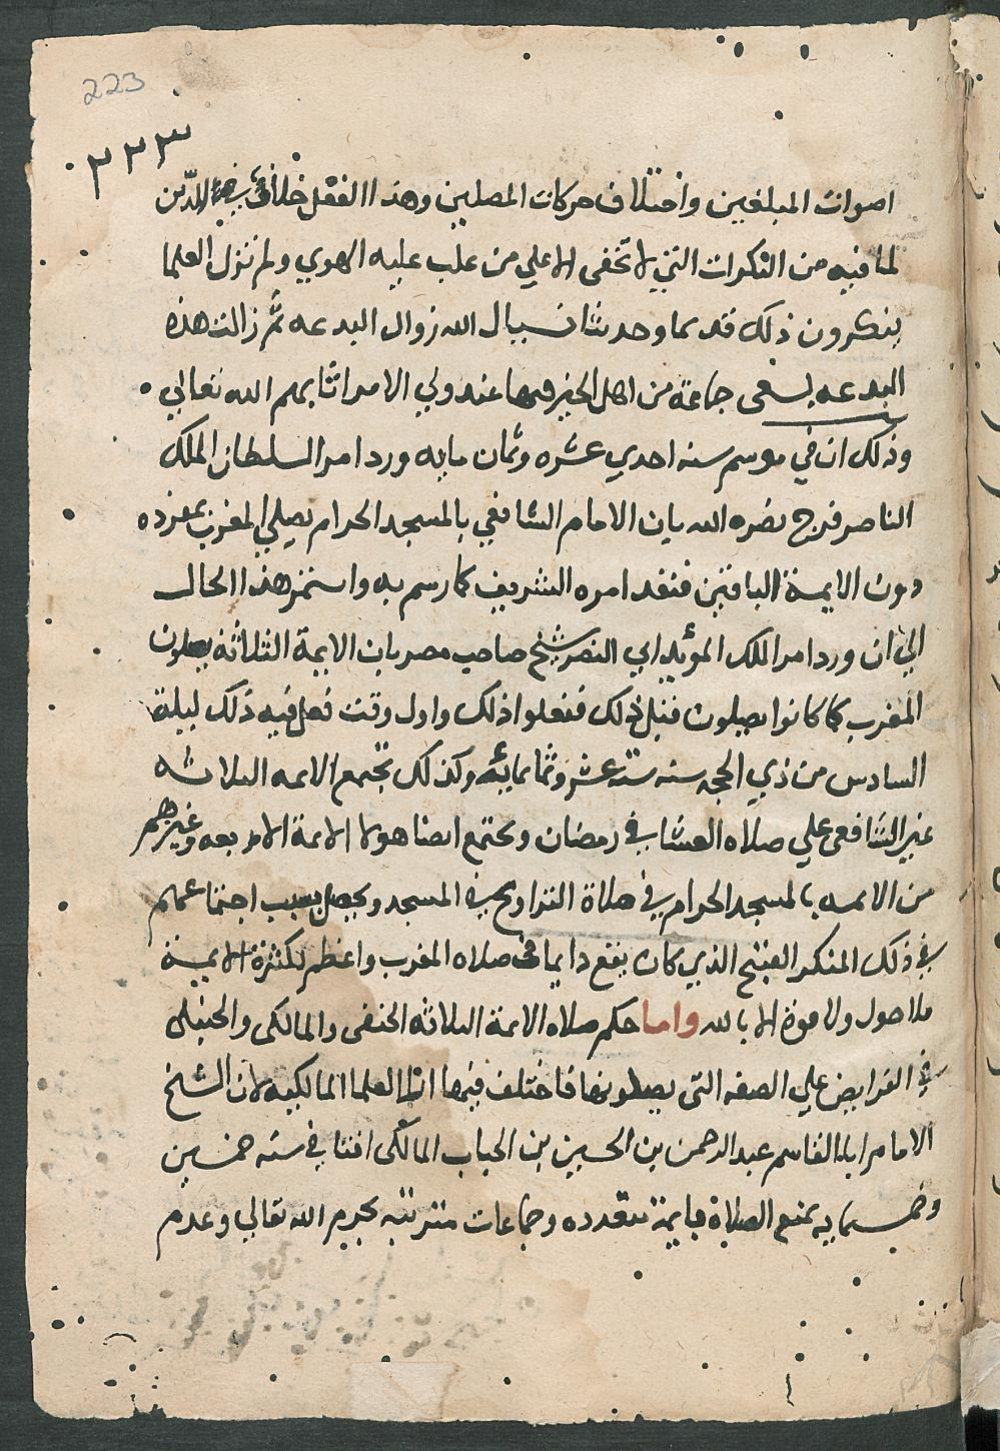 223
٢٢٣
اصوات المبلغين واختلاف حركات المصلين وهذا الفعل خلاف الدين
لما فيه من النكرات التي لا تخفى الا علي من غلب عليه الهوي ولم تزل العلما
ينكرون ذلك قديما وحديثا نسيال الله زوال البدعه ثم زالت هذه
البدعه بسعى جماعة من اهل الخير فيها عند ولي الامر اثابهم الله تعالي
وذلك ان في موسم سنه احدي عشره وثمان مايه ورد امر السلطان الملك
الناصر فرج نصره الله بان الامام الشافعي بالمسجد الحرام يصلي المغرب بمفرده
دون الايمة الباقين فنفد امره الشريف كما رسم به واستمر هذا الحال
الي ان ورد امر الملك المؤيد ابي النصر شيخ صاحب مصر بان الايمة الثلاثة يصلون
المغرب كما كانوا يصلون قبل ذلك ففعلوا ذلك واول وقت فعل فيه ذلك ليلة
السادس من ذي الحجه سنه ستة عشر وثمانمايئه وكذلك تجتمع الايمه الثلاثه
غير الشافعى علي صلاه العشا في رمضان وتجتمع ايضا هولا الايمة الاربعه وغيرهم
من الايمه بالمسجد الحرام في صلاة التراويح في المسجد ويحصل بسبب اجتماعهم
في ذلك المنكر القبيح الذي كان يقع دايما في صلاه المغرب واعظم لكثرة الايمة
فلا حول ولا قوة الا بالله واما حكم صلاه الايمة الثلاثه الحنفى والمالكى والحنبلى
في الفرايض علي الصفه التى يصلونها فاختلف فيها العلما المالكيه لان الشيخ
الامام ابا القاسم عبد الرحمن بن الحسين بن الحباب المالكى افتا في سنه خمسين
وخمسمايه بمنع الصلاة بايمة متعدده وجماعات مترتبه بحرم الله تعالي وعدم